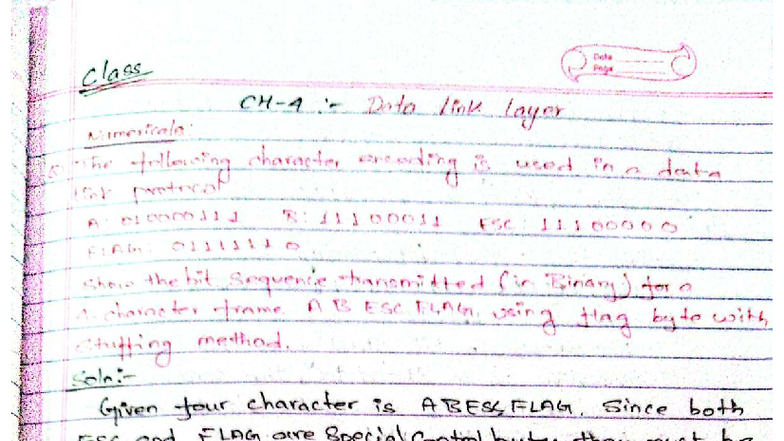 Date
Page
Class
CH-4 :- Data link layer
Numericals:
The following character encoding is used in a data
link protocol
A: 01000111 B: 11100011 ESC: 11100000
FLAG: 01111110
Show the bit sequence transmitted (in Binary) for a
4-character frame A B ESC FLAG, using flag byte with
stuffing method.
Soln:-
Given four character is A B ESC, FLAG. Since both
ESC and FLAG are Special Control bytes they must be